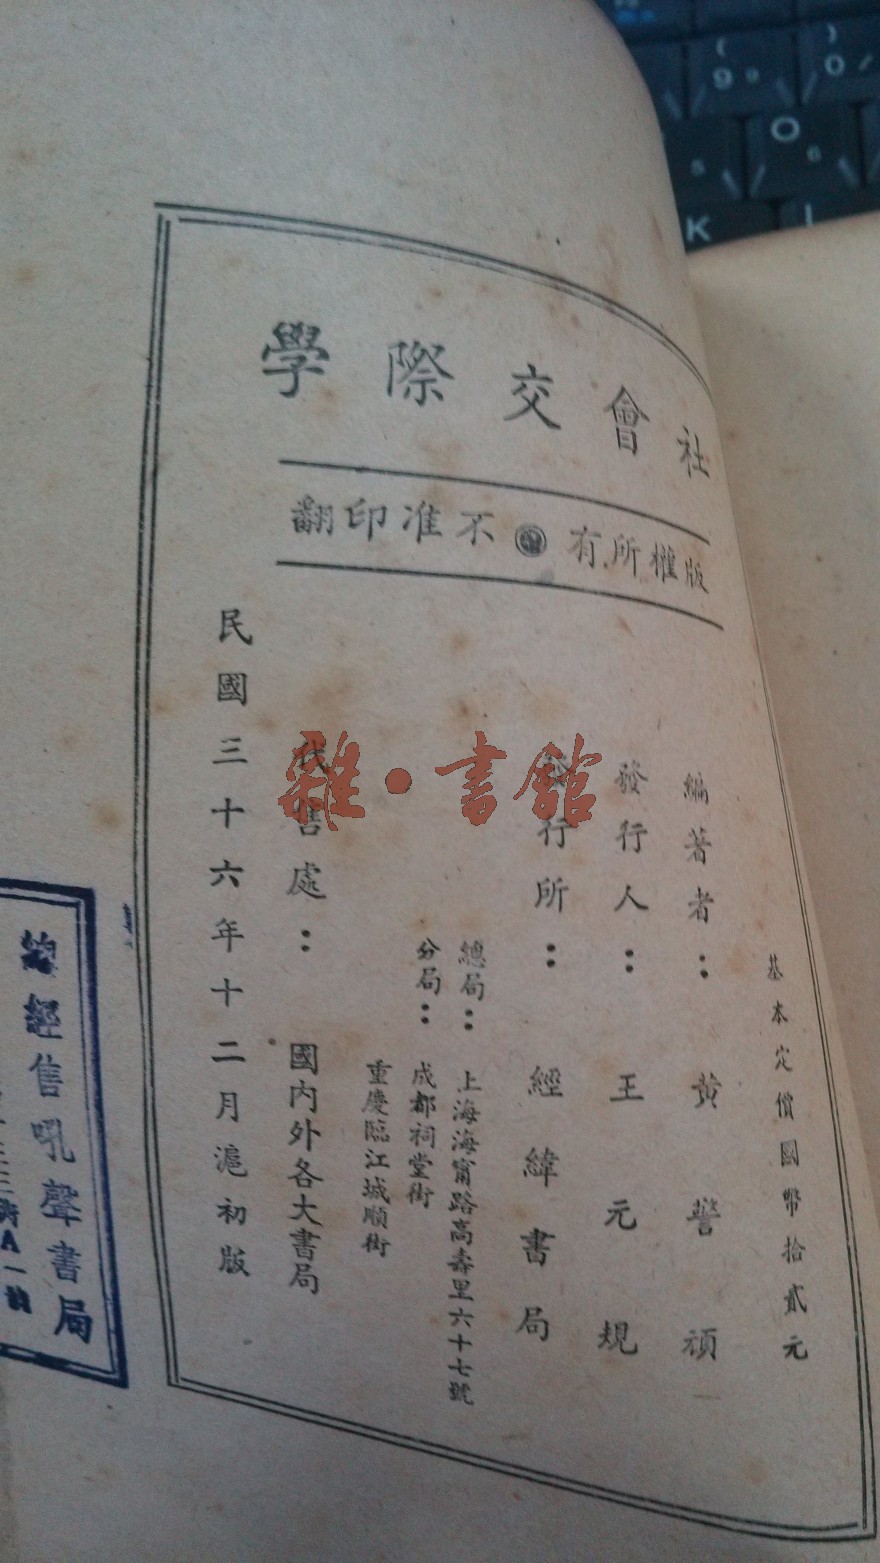 社會交際學
版權所有 不准印翻
基本定價國幣拾貳元
編著者：黃警頑
發行人：王元規
發行所：經緯書局
總局：上海海甯路高壽里六十七號
分局：成都祠堂街
重慶臨江城順街
代售處：國內外各大書局
民國三十六年十二月滬初版
雜·書館
總經售吼聲書局
9
0
O
6
K